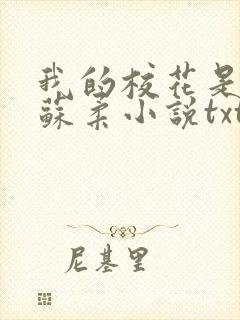 我的校花是
蘇柔小說txt
尼基里